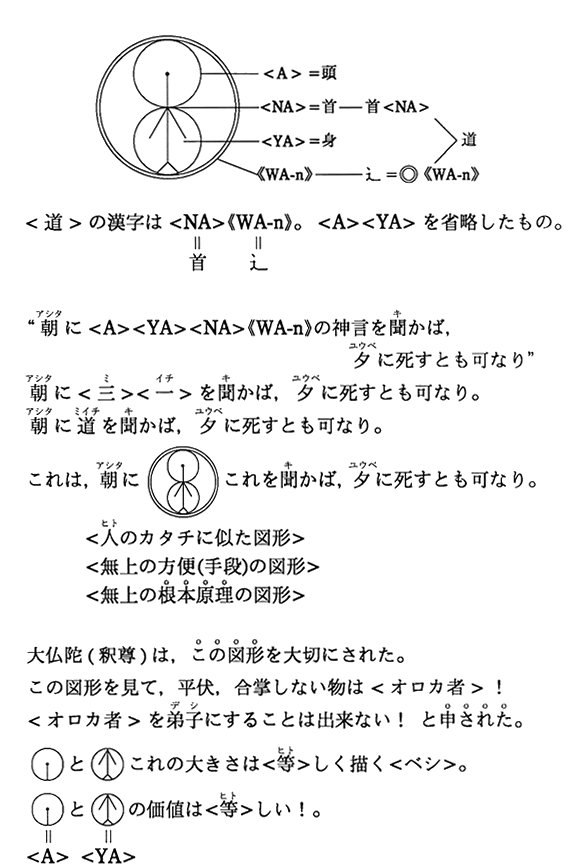 <A>=頭
<NA>=首―首<NA>
<YA>=身
道
《WA-n》―辶=◎《WA-n》
<道>の漢字は<NA>《WA-n》。<A><YA>を省略したもの。
॥ ॥
首 辶
アシタ キ
“朝に<A><YA><NA>《WA-n》の神言を聞かば,
ユウベ
夕に死すとも可なり”
アシタ ミ イチ キ ユウベ
朝に<三><一>を聞かば,夕に死すとも可なり。
アシタ ミイチ キ ユウベ
朝に道を聞かば,夕に死すとも可なり。
アシタ キ ユウベ
これは,朝に これを聞かば,夕に死すとも可なり。
ヒト
<人のカタチに似た図形>
<無上の方便(手段)の図形>
<無上の根本原理の図形>
大仏陀(釈尊)は,この図形を大切にされた。
この図形を見て,平伏,合掌しない物は<オロカ者>!
デシ
<オロカ者>を弟子にすることは出来ない! と申された。
ヒト
と これの大きさは<等>しく描く<ベシ>。
ヒト
と の価値は<等>しい!。
॥ ॥
<A> <YA>